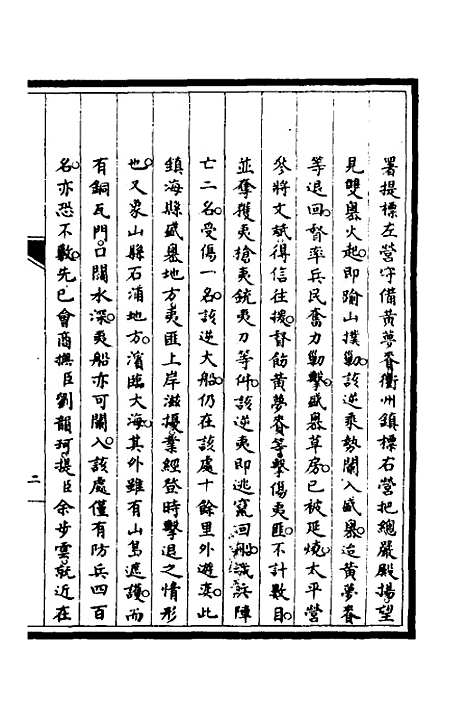 署提標左營守備黃夢賚衢州鎮標右營把總嚴殿揚望
見雙嶴火起即踰山撲勦該逆乘勢闖入盛嶴迨黃夢賚
等退回督率兵民奮力勦擊盛嶴草房已被延燒太平營
參將文斌得信往援督飭黃夢賚等擊傷夷匪不計數目
並奪獲夷搶夷銃夷刀等件該逆夷即逃竄回船我兵陣
亡二名受傷一名該逆大船仍在該處十餘里外遊奕此
鎮海縣盛嶴地方夷匪上岸滋擾業經登時擊退之情形
也又象山縣石浦地方濱臨大海其外雖有山島遮護而
有銅瓦門口闊水深夷船亦可闌入該處僅有防兵四百
名亦恐不敷先已會商撫臣劉韻珂提臣余步雲就近在
二